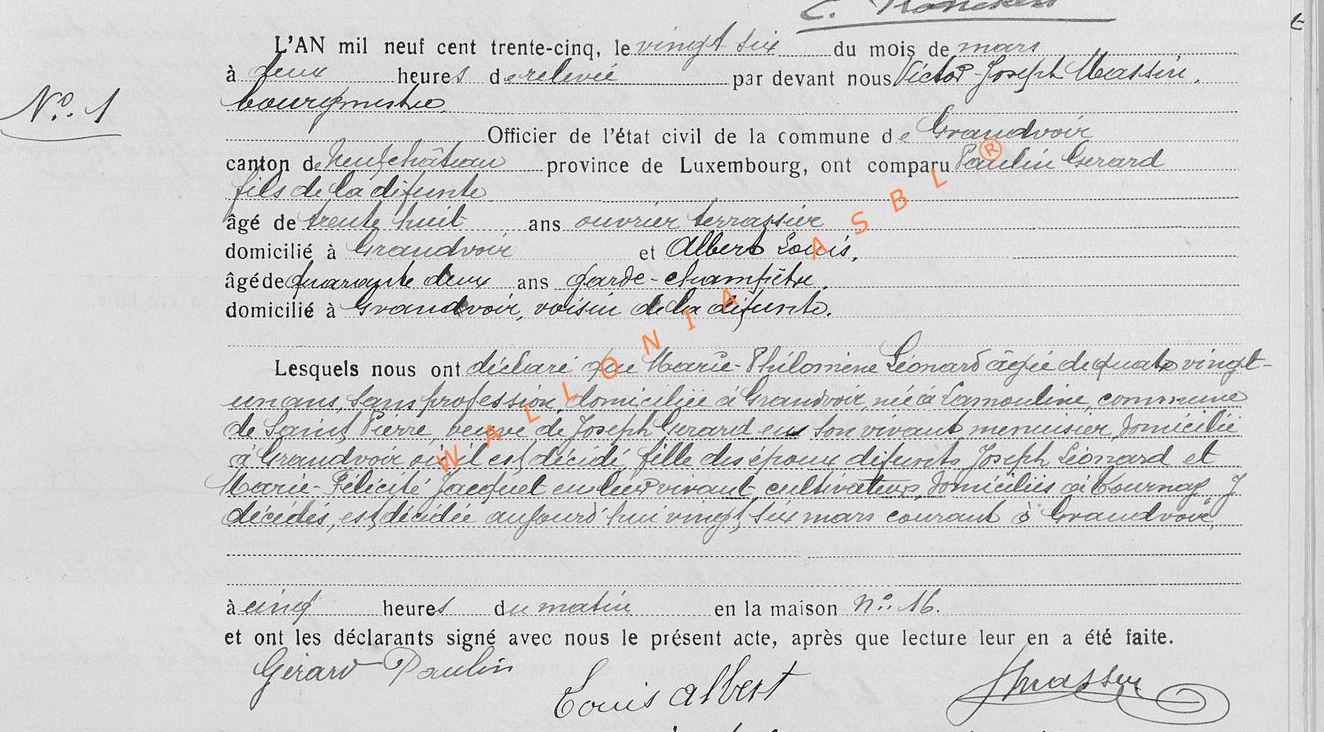 L'AN mil neuf cent trente-cinq, le vingt six du mois de mars
à deux heures de relevée par devant nous Victor-Joseph Massin,
N° 1
bourgmestre
Officier de l'état civil de la commune de Grandvoir
canton de Neufchâteau province de Luxembourg, ont comparu Paulin Gerard
fils de la défunte
âgé de trente huit ans ouvrier terrassier
domicilié à Grandvoir et Albert Louis,
âgé de quarante deux ans garde-champêtre,
domicilié à Grandvoir, voisin de la défunte.
Lesquels nous ont déclaré que Marie-Philomène Léonard âgée de quatre vingt-
un ans, sans profession, domiciliée à Grandvoir, née à Lamouline, commune
de Saint Pierre, veuve de Joseph Gerard en son vivant menuisier, domicilié
à Grandvoir où il est décédé fille des époux défunts Joseph Léonard et
Marie-Félicité Jacquet en leur vivant cultivateurs, domiciliés à Tournay, y
décédés, est décédée aujourd'hui vingt six mars courant à Grandvoir,
à cinq heures du matin en la maison N° 16.
et ont les déclarants signé avec nous le présent acte, après que lecture leur en a été faite.
Gérard Paulin
Louis Albert
Massin
WALLONIA ASBL ®